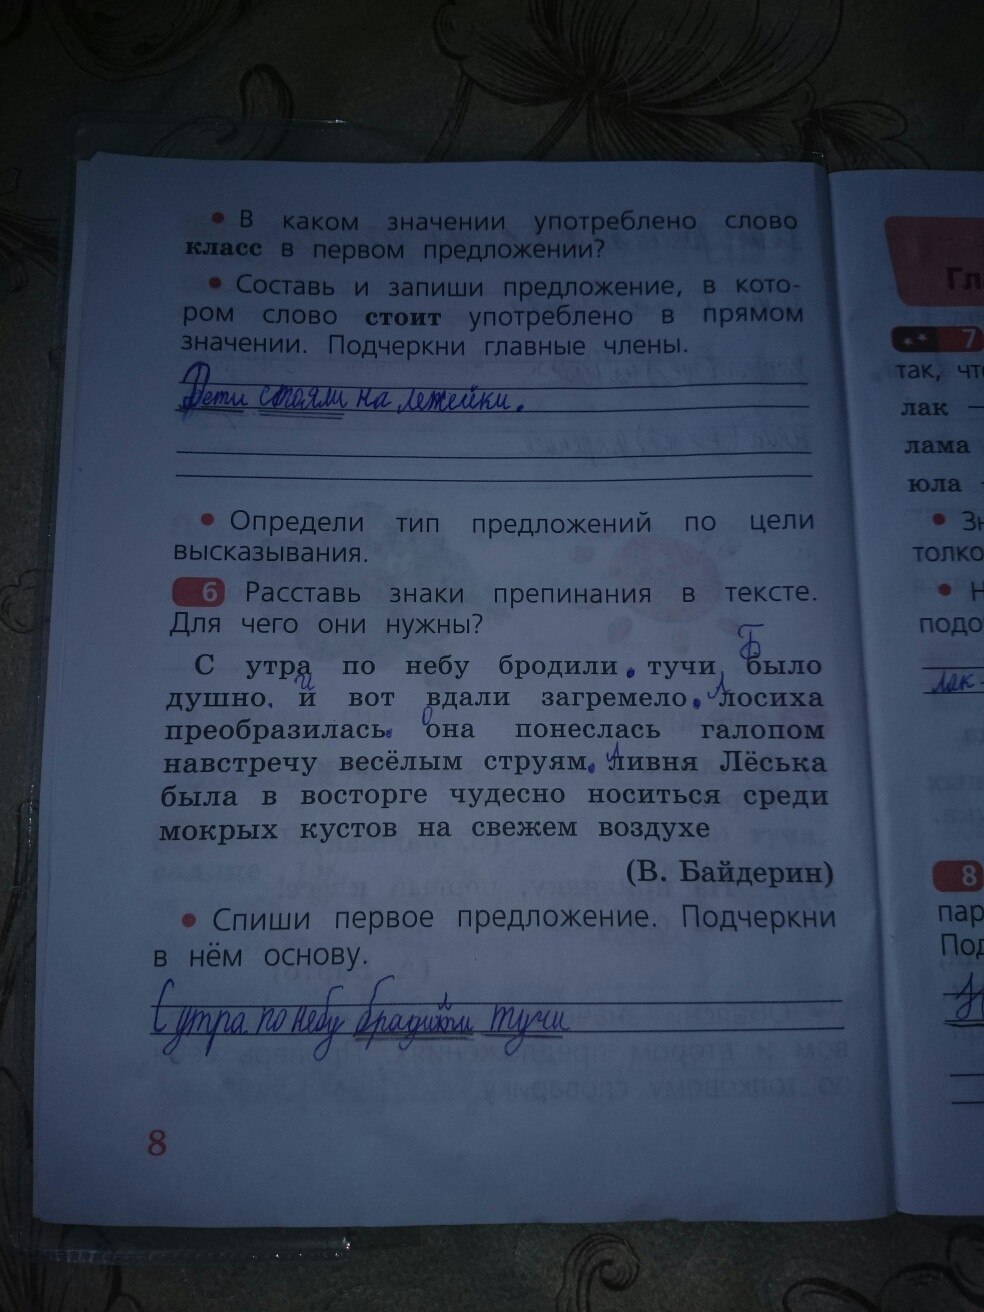 • В каком значении употреблено слово
класс в первом предложении?
• Составь и запиши предложение, в кото-
ром слово стоит употреблено в прямом
значении. Подчеркни главные члены.
Дети стояли на лежейки.
• Определи тип предложений по цели
высказывания.
6 Расставь знаки препинания в тексте.
Для чего они нужны?
Б
С утра по небу бродили. тучи было
душно. и вот вдали загремело. Лосиха
преобразилась. Она понеслась галопом
навстречу весёлым струям. ливня Лёська
была в восторге чудесно носиться среди
мокрых кустов на свежем воздухе
(В. Байдерин)
• Спиши первое предложение. Подчеркни
в нём основу.
С утра по небу брадили тучи
8
Гл
7
так, чт
лак —
лама
юла
• Зн
толко
• Н
подо
лак-
8
пар
Под